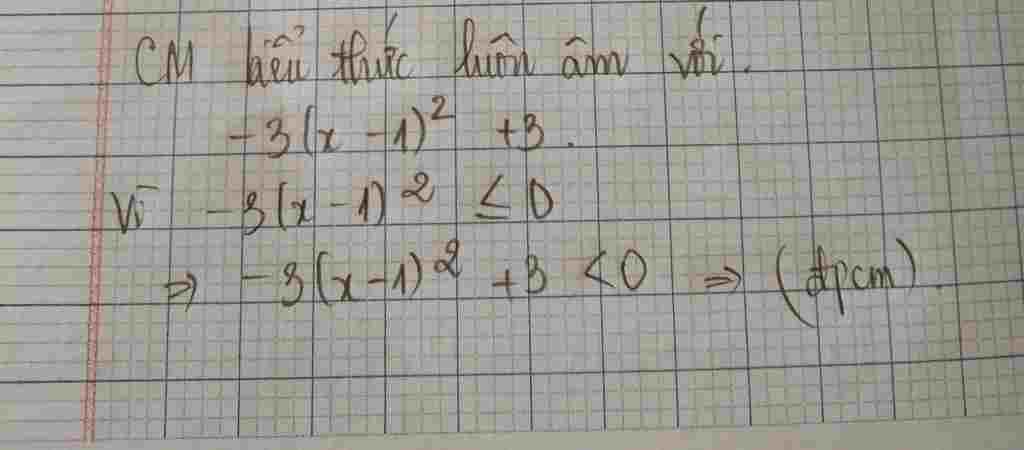 CM biểu thức luôn âm với.
-3(x -1)² +3.
Vì -3(x -1)² ≤ 0
⇒ -3(x-1)² +3 <0 ⇒ (đpcm).